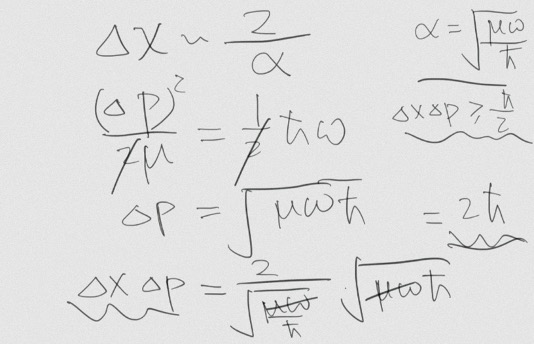 Δx ~ 2/α
α = √(μω/ħ)
(Δp)²/2μ = 1/2 ħω
ΔxΔp ≥ ħ/2
Δp = √(μωħ)
= 2ħ
Δx Δp = 2/√(μω/ħ) √(μωħ)